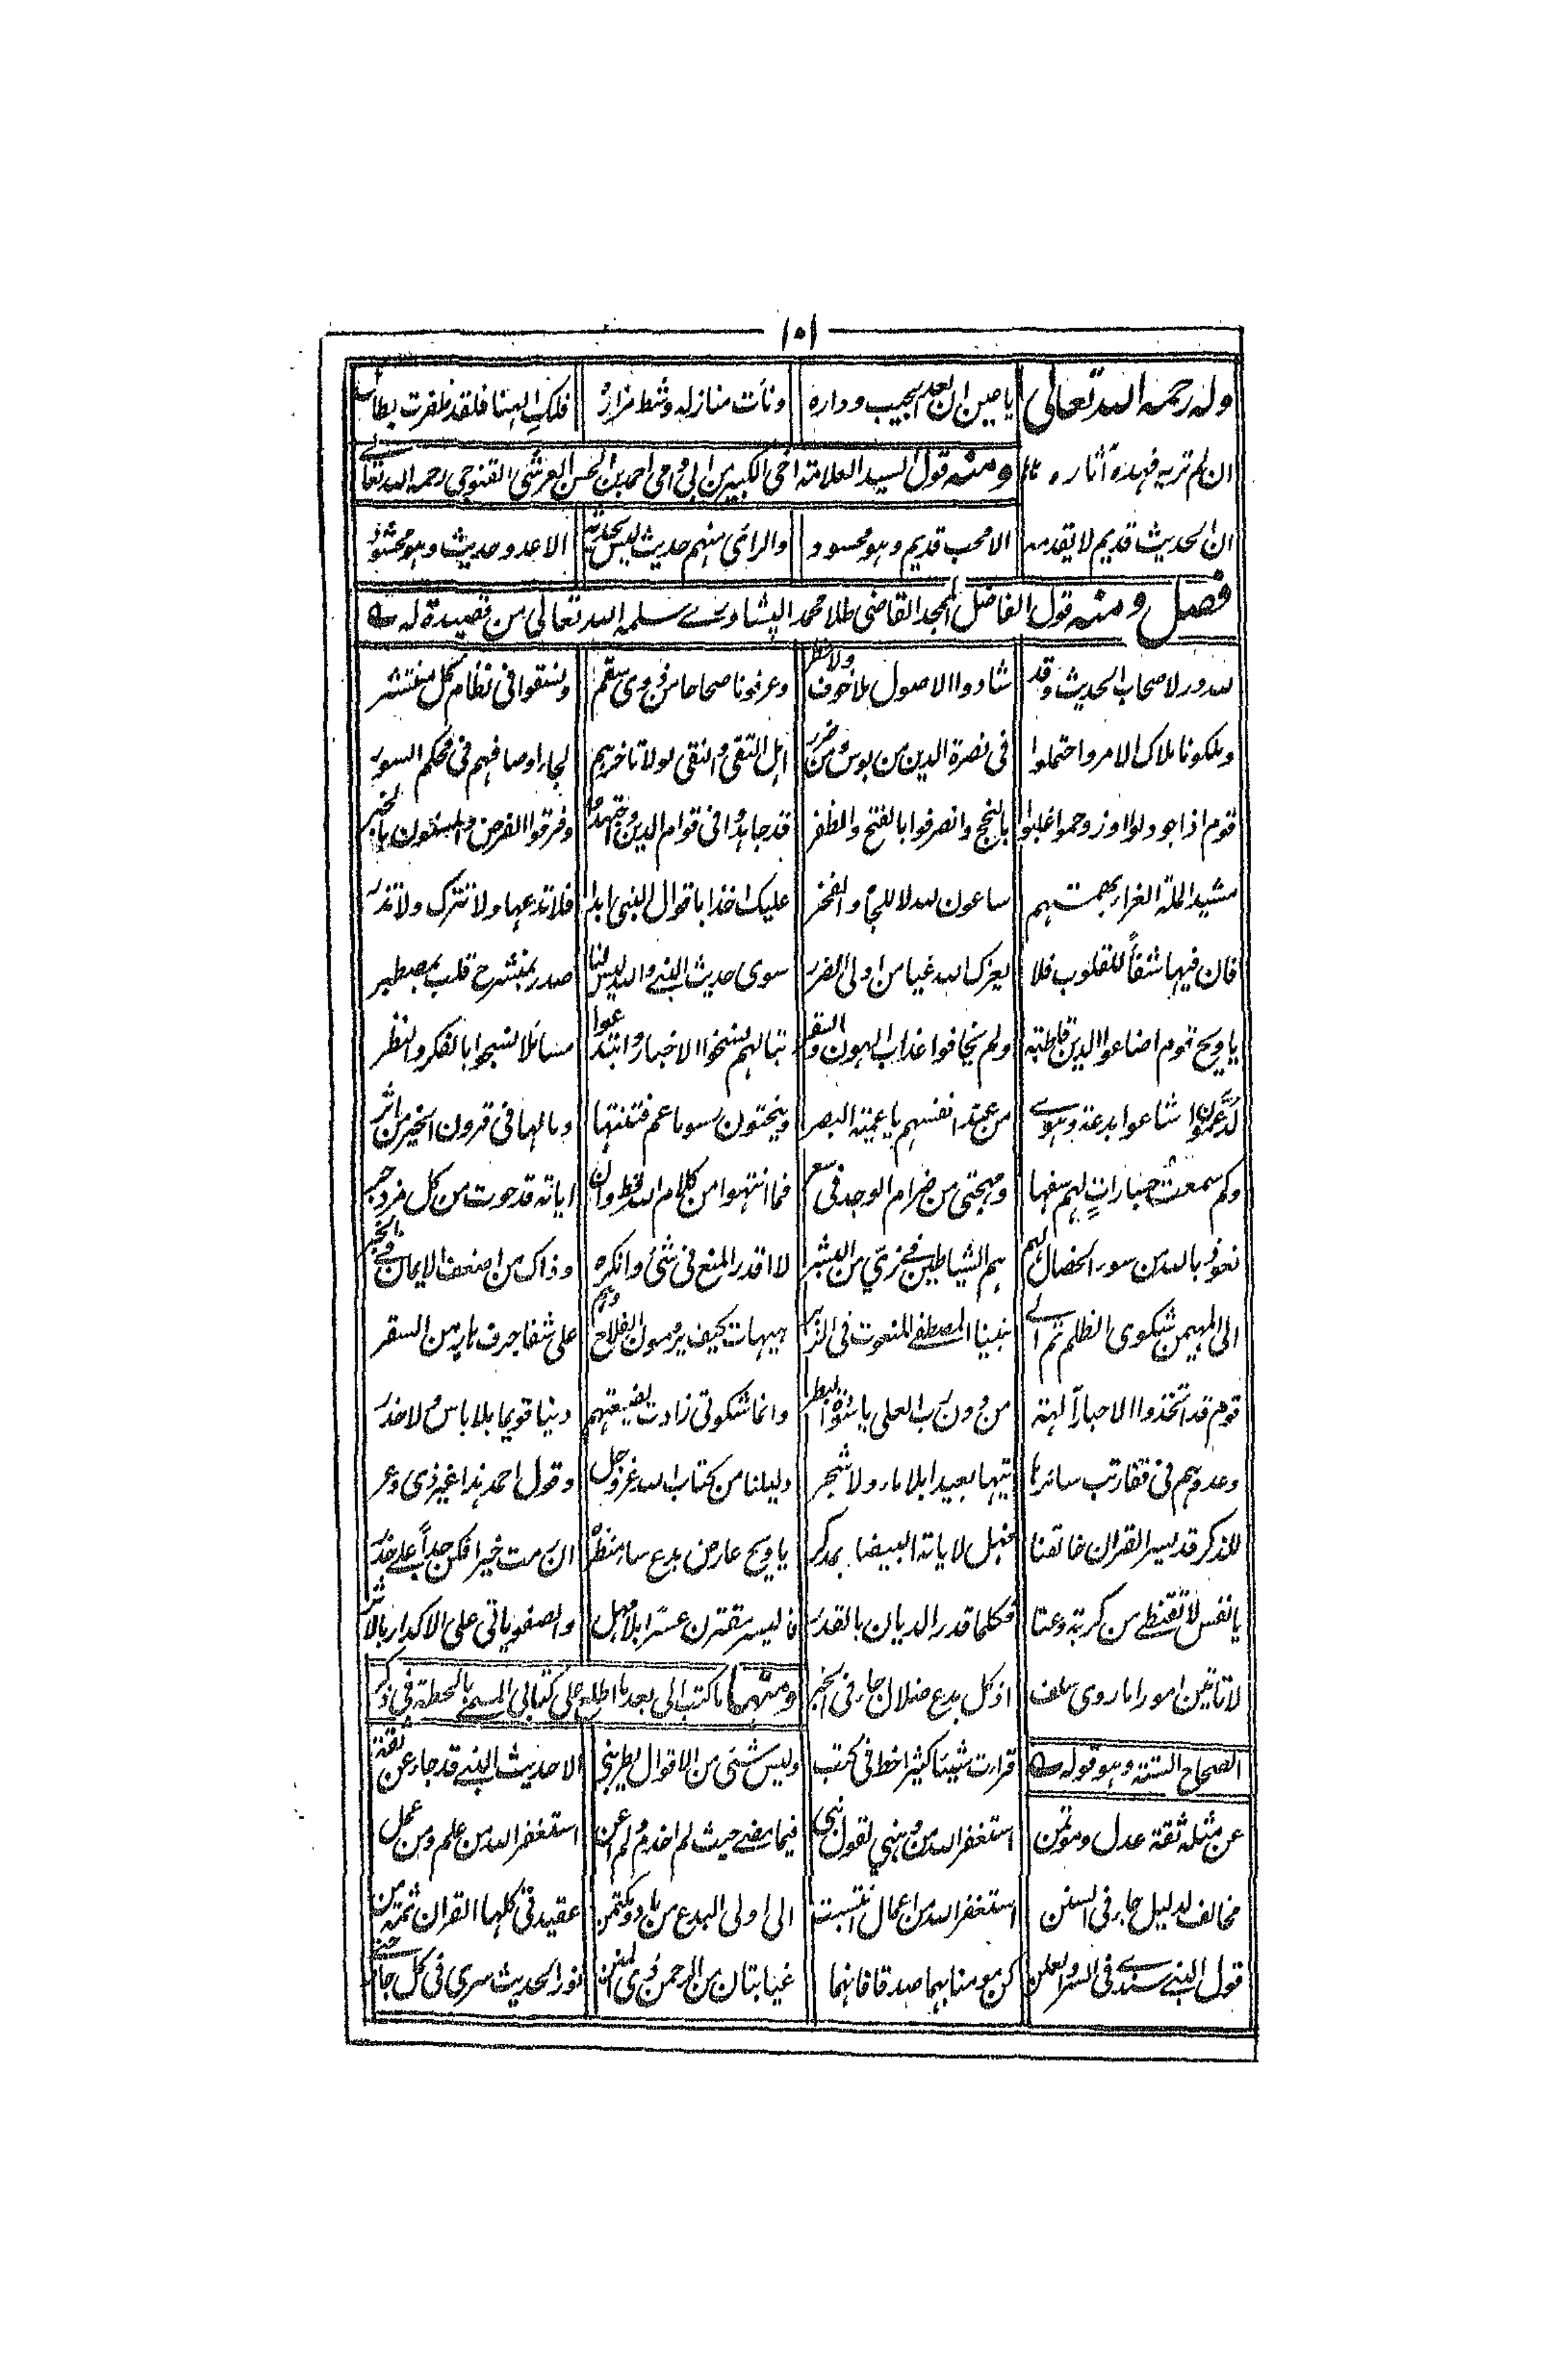 ١٥١
وله رحمه الله تعالى يا عين ان بعد الحبيب وداره ونأت منازله وشط مزاره فلك الهنا فلقد ظفرت بطائل
ان لم تريه فهذه آثاره ومنه قول السيد العلامة اخي الكبير من ابي وامي احمد بن الحسن العرشي القنوجي رحمه الله تعالى
ان الحديث قديم لا يقدمه الا محب قديم وهو محسود والرائ منهم حديث ليس يحدثه الا عدو حديث وهو محشود
فصل ومنه قول الفاضل المجد القاضي طلا محمد البشاوري سلمه الله تعالى من قصيدة له
لله در لاصحاب الحديث وقد شادوا الاصول بلا خوف ولا خطر وعرفونا صحاحا من ذوى سقم ونسقوا في نظام كل منتشر
وملكونا ملاك الامر واحتملوا في نصرة الدين من بوس ومن ضرر اهل التقى والنقى لولا تاخرهم لجاء اوصافهم في محكم السور
قوم اذا جودلوا او زوحموا غلبوا بالنجح وانصرفوا بالفتح والظفر قد جاهدوا في قوام الدين واجتهدوا وفرقوا الفرض والمسنون بالخبر
مشيد الملة الغراء بهمتهم ساعون لله لا للجاه والفخر عليك اخذا باقوال النبي ابدا فلا تدعها ولا تترك ولا تذر
فان فيها شفاً للقلوب فلا يغرك الله غيا من اولى الضرر سوى حديث النبي والله ليس لنا صدر بمنشرح قلب بمصطبر
يا ويح قوم اضاعوا الدين قاطبة ولم يخافوا عذاب الهون والسقر تبا لهم نسخوا الاخبار وابتدعوا مسائلا نسجوا بالفكر والنظر
اشاعوا بدعة وهوى من عند انفسهم يا عمية البصر وينحتون رسوما عم فتنتها وما لها في قرون الخير من اثر
وكم سمعت عبارات لهم سفها ومهجتي من ضرام الوجد في سعر فما انتهوا من كلام الله قط وان اياته قد حوت من كل مزدجر
نعوذ بالله من سوء الخصال لهم هم الشياطين في زي من البشر لا اقدر المنع في شئ وانكره وذاك من اضعف الايمان في الخبر
الى المهيمن شكوى الظلم ثم الى نبينا المصطفى المنعوت في الزبر هيهات كيف يرومون الفلاح وهم على شفا جرف هار من السقر
قوم قد اتخذوا الاحبار آلهة من دون رب العلى يا شوة البطر وانما شكوتي زادت لضيعتهم دينا قويما بلا باس ولا حذر
وعدوهم في قفار تب سائرها تيها بعيدا بلا ماء ولا شجر دليلنا من كتاب الله عز وجل وقول احمد هذا غير ذى وعر
للذكر قد يسر القران خالقنا فهل لاياته البيضاء مدكر يا ويح عارض بدع ساء منظره ان رمت خيرا فكن جداً على حذر
يا نفس لا تقنطي من كربة وعنا فكلما قدر الديان بالقدر فاليسر مقترن عسرا بلا مهل والصفو ياتي على الاكدار بالاثر
لا تاتين امورا ما روى سلف اذ كل بدع ضلال جاء في الخبر ومنها ما كتب الي بعد ما اطلع على كتابي المسمى بالحطة في ذكر
الصحاح الستة وهو قوله قرات شيئا كثيرا خط في كتب وليس شئى من الاقوال يطربني الا حديث النبي قد جاء عن ثقة
عن مثله ثقة عدل ومؤتمن استغفر الله من ذهني لقول نبي فيما مضى حيث لم اخدم ولم اعن استغفر الله من علم ومن عمل
مخالف لدليل جاء في السنن استغفر الله من اعمال انتسبت الى اولى البدع من باد ومكتمن عقيدتي كلها القران ثمة من
قول النبي سندي في السر والعلن كن مومنا بهما صدقا فانهما غياثتان من الرحمن ذى المنن نور الحديث سرى في كل